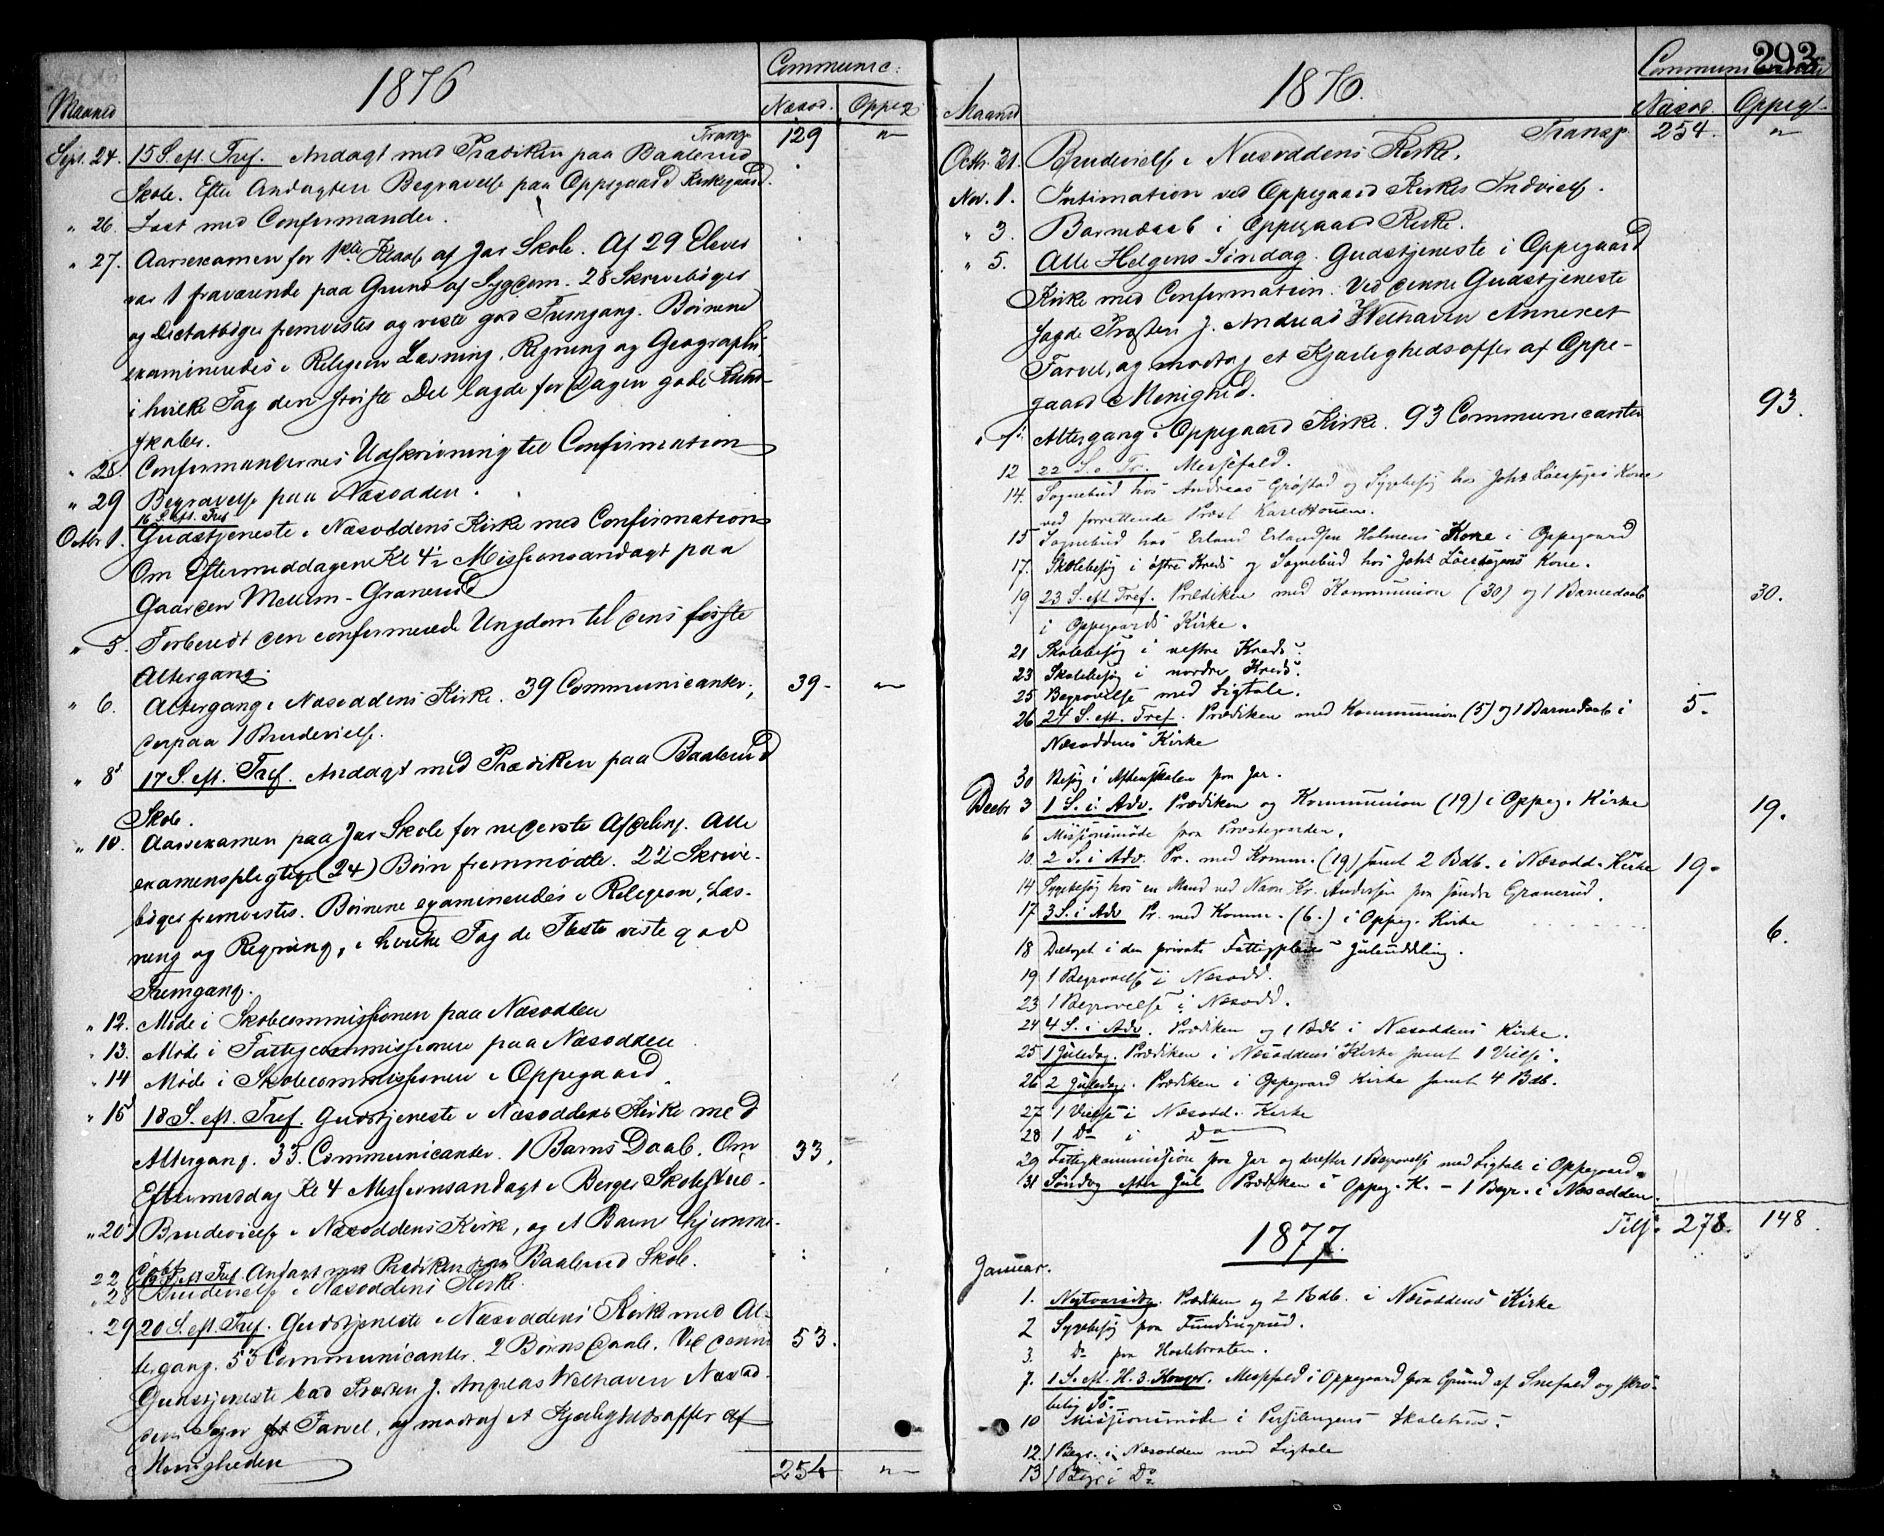 Communic:
1876
Maaned
Næsod. Oppeg
Transp. 129 "
Sept. 24. 15 S. eft. Tref. Andagt med Prædiken paa Baalerud
Skole. Efter Andagten Begravelse paa Oppegaard Kirkegaard.
" 26. Læst med Confirmander.
" 27. Aarsexamen for 1ste Klasse af Jar Skole. Af 29 Elever
var 1 fraværende paa Grund af Sygdom. 28 Skrivebøger
og Dictatbøger fremvistes og viste god Fremgang. Børnene
examineredes i Religion Læsning, Regning og Geographi,
i hvilke Fag den største Del lagde for Dagen gode Kund-
skaber.
" 28 Confirmandernes Udskrivning til Confirmation
" 29 Begravelse paa Næsodden.
16 S. eft. Tref
Octbr 1. Gudstjeneste i Næsoddens Kirke med Confirmation
Om Eftermiddagen Kl 4½ Missionsandagt paa
Gaarden Mellem-Granerud
" 5. Forberedt den confirmerede Ungdom til dens første
Altergang.
" 6. Altergang i Næsoddens Kirke. 39 Communicanter, 39 - "
derpaa 1 Brudevielse.
" 8 17 S. eft. Tref. Andagt med Prædiken paa Baalerud
Skole.
" 10. Aarsexamen paa Jar Skole for nederste Afdeling. Alle
examenspligtige (24) Børn fremmødte. 22 Skrive-
bøger fremvistes. Børnene examineredes i Religion, Læs-
ning og Regning, i hvilke Fag de Fleste viste god
Fremgang.
" 12. Møde i Skolecommissionen paa Næsodden
" 13. Møde i Fattigcommissionen paa Næsodden
" 14 Møde i Skolecommissionen i Oppegaard.
" 15 18 S. eft. Tref. Gudstjeneste i Næsoddens Kirke med
Altergang. 33 Communicanter. 1 Barns Daab. Om 33.
Eftermiddag Kl 4 Missionsandagt i Berger Skolestue.
" 20 Brudevielse i Næsoddens Kirke, og et Barn hjemme-
døbt
22 19 S. eft Tref. Andagt med Prædiken paa Baalerud Skole.
" 28 Brudevielse i Næsoddens Kirke.
" 29 20 S. eft. Tref. Gudstjeneste i Næsoddens Kirke med Al-
tergang. 53 Communicanter. 2 Børns Daab. Ved denne 53.
Gudstjeneste bad Præsten J. Andreas Welhaven Næsod-
den Sogn Farvel, og modtog et Kjærlighedsoffer af
Menigheden
254 "
293
Communicanter
1876.
Maaned
Næsod. Oppeg.
Transp. 254. "
Octbr. 21. Brudevielse i Næsoddens Kirke.
Nov. 1. Intimation ved Oppegaard Kirkes Indvielse.
" 3. Barnedaab i Oppegaard Kirke.
" 5. Alle Helgens Søndag. Gudstjeneste i Oppegaard
Kirke med Confirmation. Ved denne Gudstjeneste
sagde Præsten J. Andreas Welhaven Annexet
Farvel, og modtog et Kjærlighedsoffer af Oppe-
gaard Menighed.
Altergang i Oppegaard Kirke. 93 Communicanter 93.
12 22 S. e. Tr. Messefald.
14. Sognebud hos Andreas Grøstad og Sygebesøg hos Johs Kone
ved forrettende Præst
15 Sognebud hos Erland Erlandsen Holmens Kone i Oppegaard
17. Skolebesøg i østre Kreds og Sognebud hos Johs Kone.
19 23 S. eft Tref. Prædiken med Kommunion (30) og 1 Barnedaab 30.
i Oppegaards Kirke.
21 Skolebesøg i vestre Kreds.
23 Skolebesøg i nordre Kreds.
25 Begravelse med Ligtale.
26 24 S. eft. Tref. Prædiken med Kommunion (5) og 1 Barnedaab i 5.
Næsoddens Kirke
30 Besøg i Aftenskolen paa Jar.
Decbr 3 1 S. i Adv. Prædiken og Kommunion (19) i Oppeg. Kirke 19.
6 Missionsmøde paa Præstegaarden.
10. 2 S. i Adv. Pr. med Komm. (19) samt 2 Bdb. i Næsodd. Kirke 19.
14 Sygebesøg hos en Mand ved Navn Kr. Andersen paa søndre Granerud.
17 3 S. i Adv Pr. med Komm. (6.) i Oppeg. Kirke 6.
18 Deltaget i den private Fattigpleies Juleuddeling.
19 1 Begravelse i Næsodd.
23 1 Begravelse i Næsodd.
24 4 S. i Adv. Prædiken og 1 Bdb i Næsoddens Kirke.
25 1 Juledag. Prædiken i Næsoddens Kirke samt 1 Vielse.
26 2 Juledag. Prædiken i Oppegaard Kirke samt 4 Bdb.
27 1 Vielse i Næsodd. Kirke
28 1 Do i Do
29 Fattigkommission paa Jar og derefter 1 Begravelse med Ligtale i Oppegaard.
31 Søndag efter Jul Prædiken i Oppeg. K. – 1 Begr. i Næsodden.
Tils. 278. 148.
1877.
Januar.
1. Nytaarsdag. Prædiken og 2 Bdb. i Næsoddens Kirke
2 Sygebesøg paa Fundingrud.
3. Do paa Haslebraaten.
7. 1 S. eft. H. 3. Konger. Messefald i Oppegaard paa Grund af Snefald og skrø-
belig Is.
10 Missionsmøde i Skolehus.
12. 1 Begr. i Næsodden med Ligtale
13 1 Begr i Do